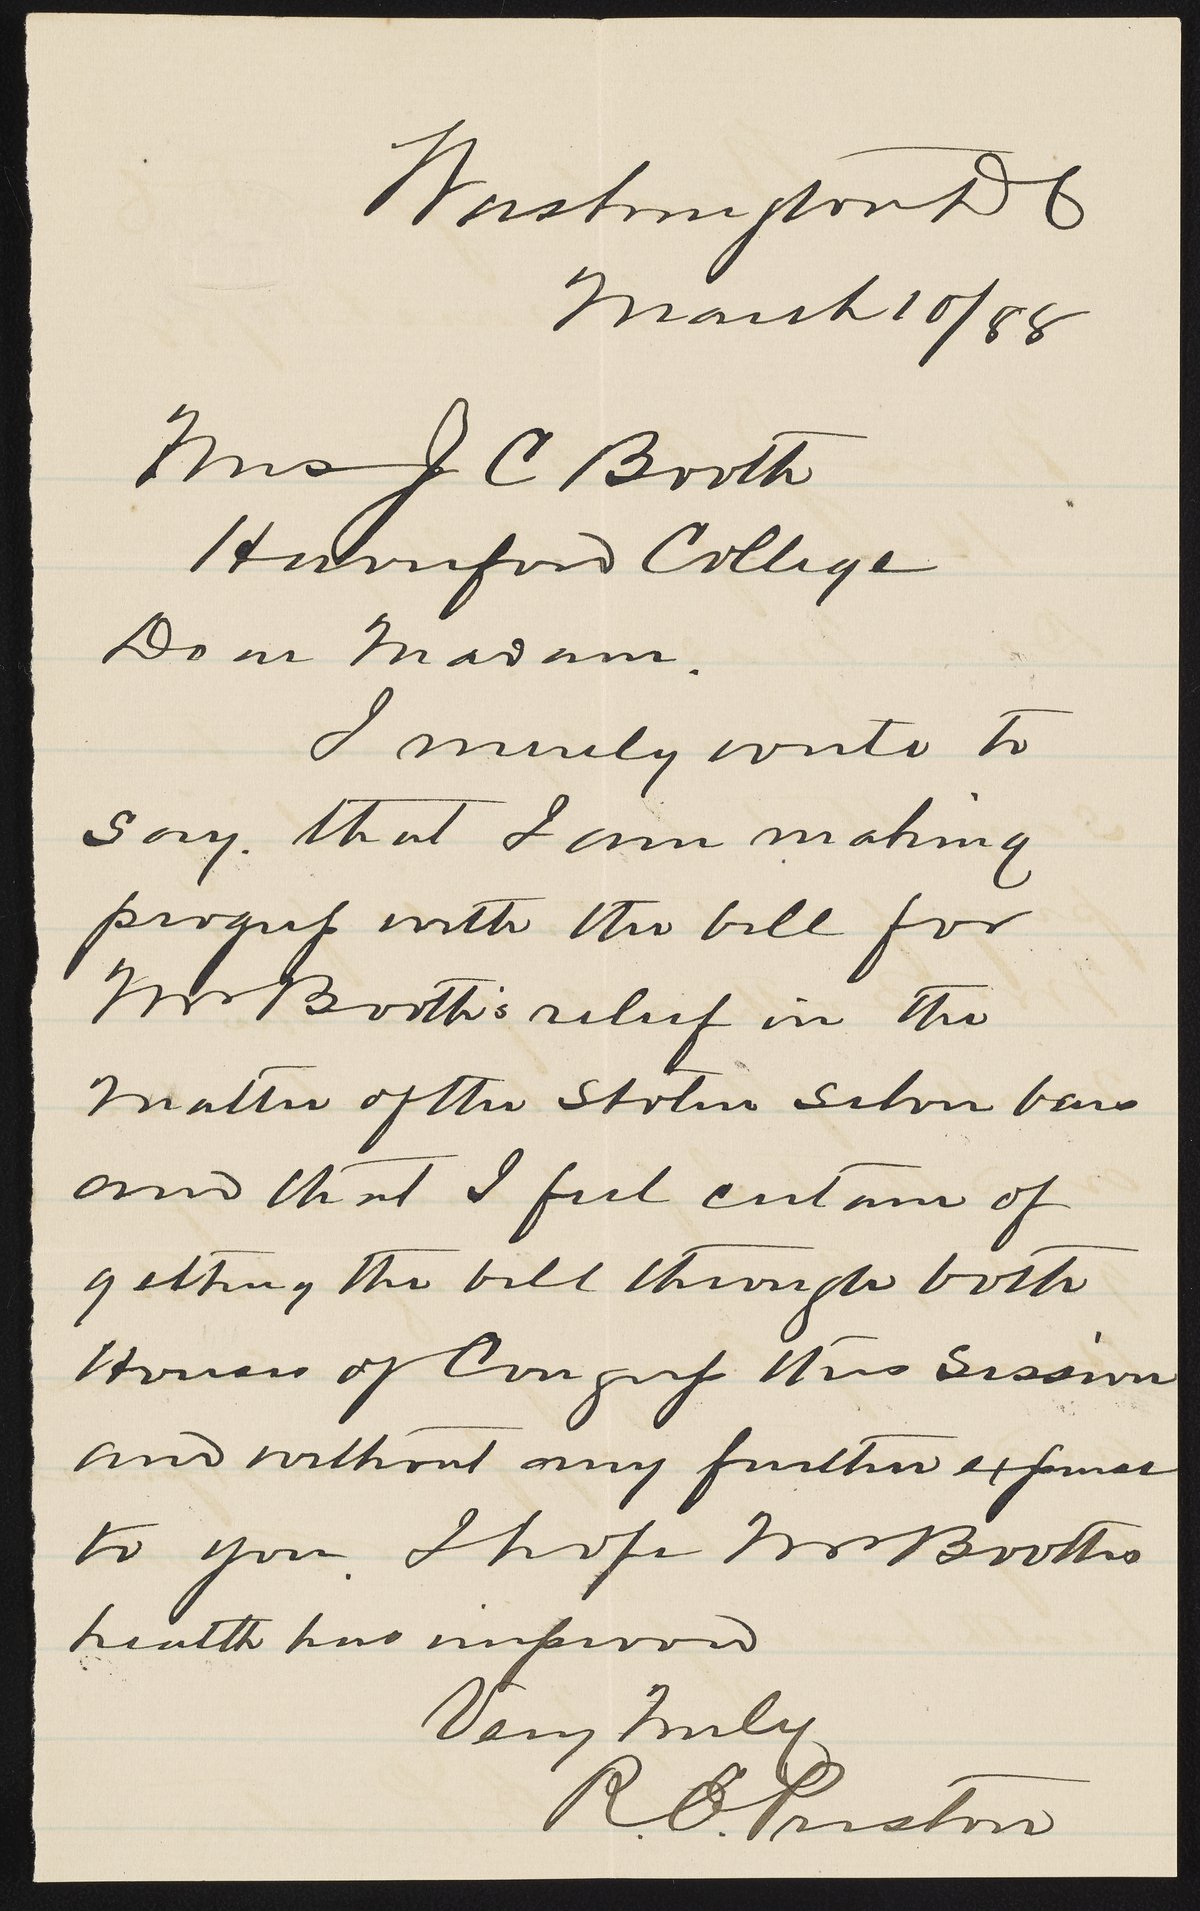 Washington D C
March 10/88
Mrs J C Booth
Haverford College
Dear Madam.
I merely write to
say. that I am making
progress with the bill for
Mr Booth's relief in the
matter of the stolen silver bars
and that I feel certain of
getting the bill through both
Houses of Congress this session
and without any further expense
to you. I hope Mr Booths
health has improved
Very Truly
R. E. Preston